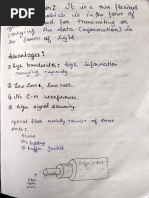 It is a thin flexible
is in the form of
used for transmitting or
carrying the data (information) in
the form of light.
Advantages:
① high bandwidth: high information
carrying capacity
② Low Loss, low cost.
③ No E-M interferences.
④ high signal security.
typical fibre mainly consists of three
parts:
① core
② cladding
③ buffer Jacket